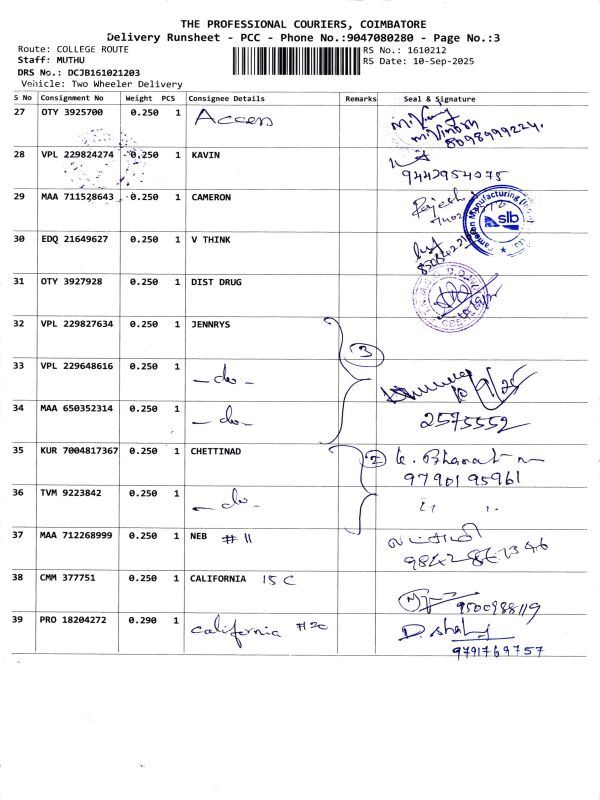 THE PROFESSIONAL COURIERS, COIMBATORE
Delivery Runsheet - PCC - Phone No.:9047080280 - Page No.:3
Route: COLLEGE ROUTE RS No.: 1610212
Staff: MUTHU RS Date: 10-Sep-2025
DRS No.: DCJB161021203
Vehicle: Two Wheeler Delivery
S No Consignment No Weight PCS Consignee Details Remarks Seal & Signature
27 OTY 3925700 0.250 1 Access
M. Vinoth
8098999224.
28 VPL 229824274 0.250 1 KAVIN
9442954075
29 MAA 711528643 0.250 1 CAMERON Rajesh
Cameron Manufacturing
slb
30 EDQ 21649627 0.250 1 V THINK
31 OTY 3927928 0.250 1 DIST DRUG
32 VPL 229827634 0.250 1 JENNRYS
3
33 VPL 229648616 0.250 1 - do -
10/9/25
34 MAA 650352314 0.250 1 - do - 2575552
35 KUR 7004817367 0.250 1 CHETTINAD 2 K. Bharat
9790195961
36 TVM 9223842 0.250 1 - do - " "
37 MAA 712268999 0.250 1 NEB #11
38 CMM 377751 0.250 1 CALIFORNIA 15 C
9500988119
39 PRO 18204272 0.290 1 California #20 D. Shaby
9791769757